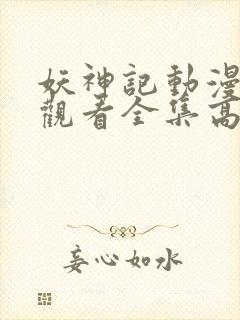 妖神記動漫
觀看全集高
妄心如水